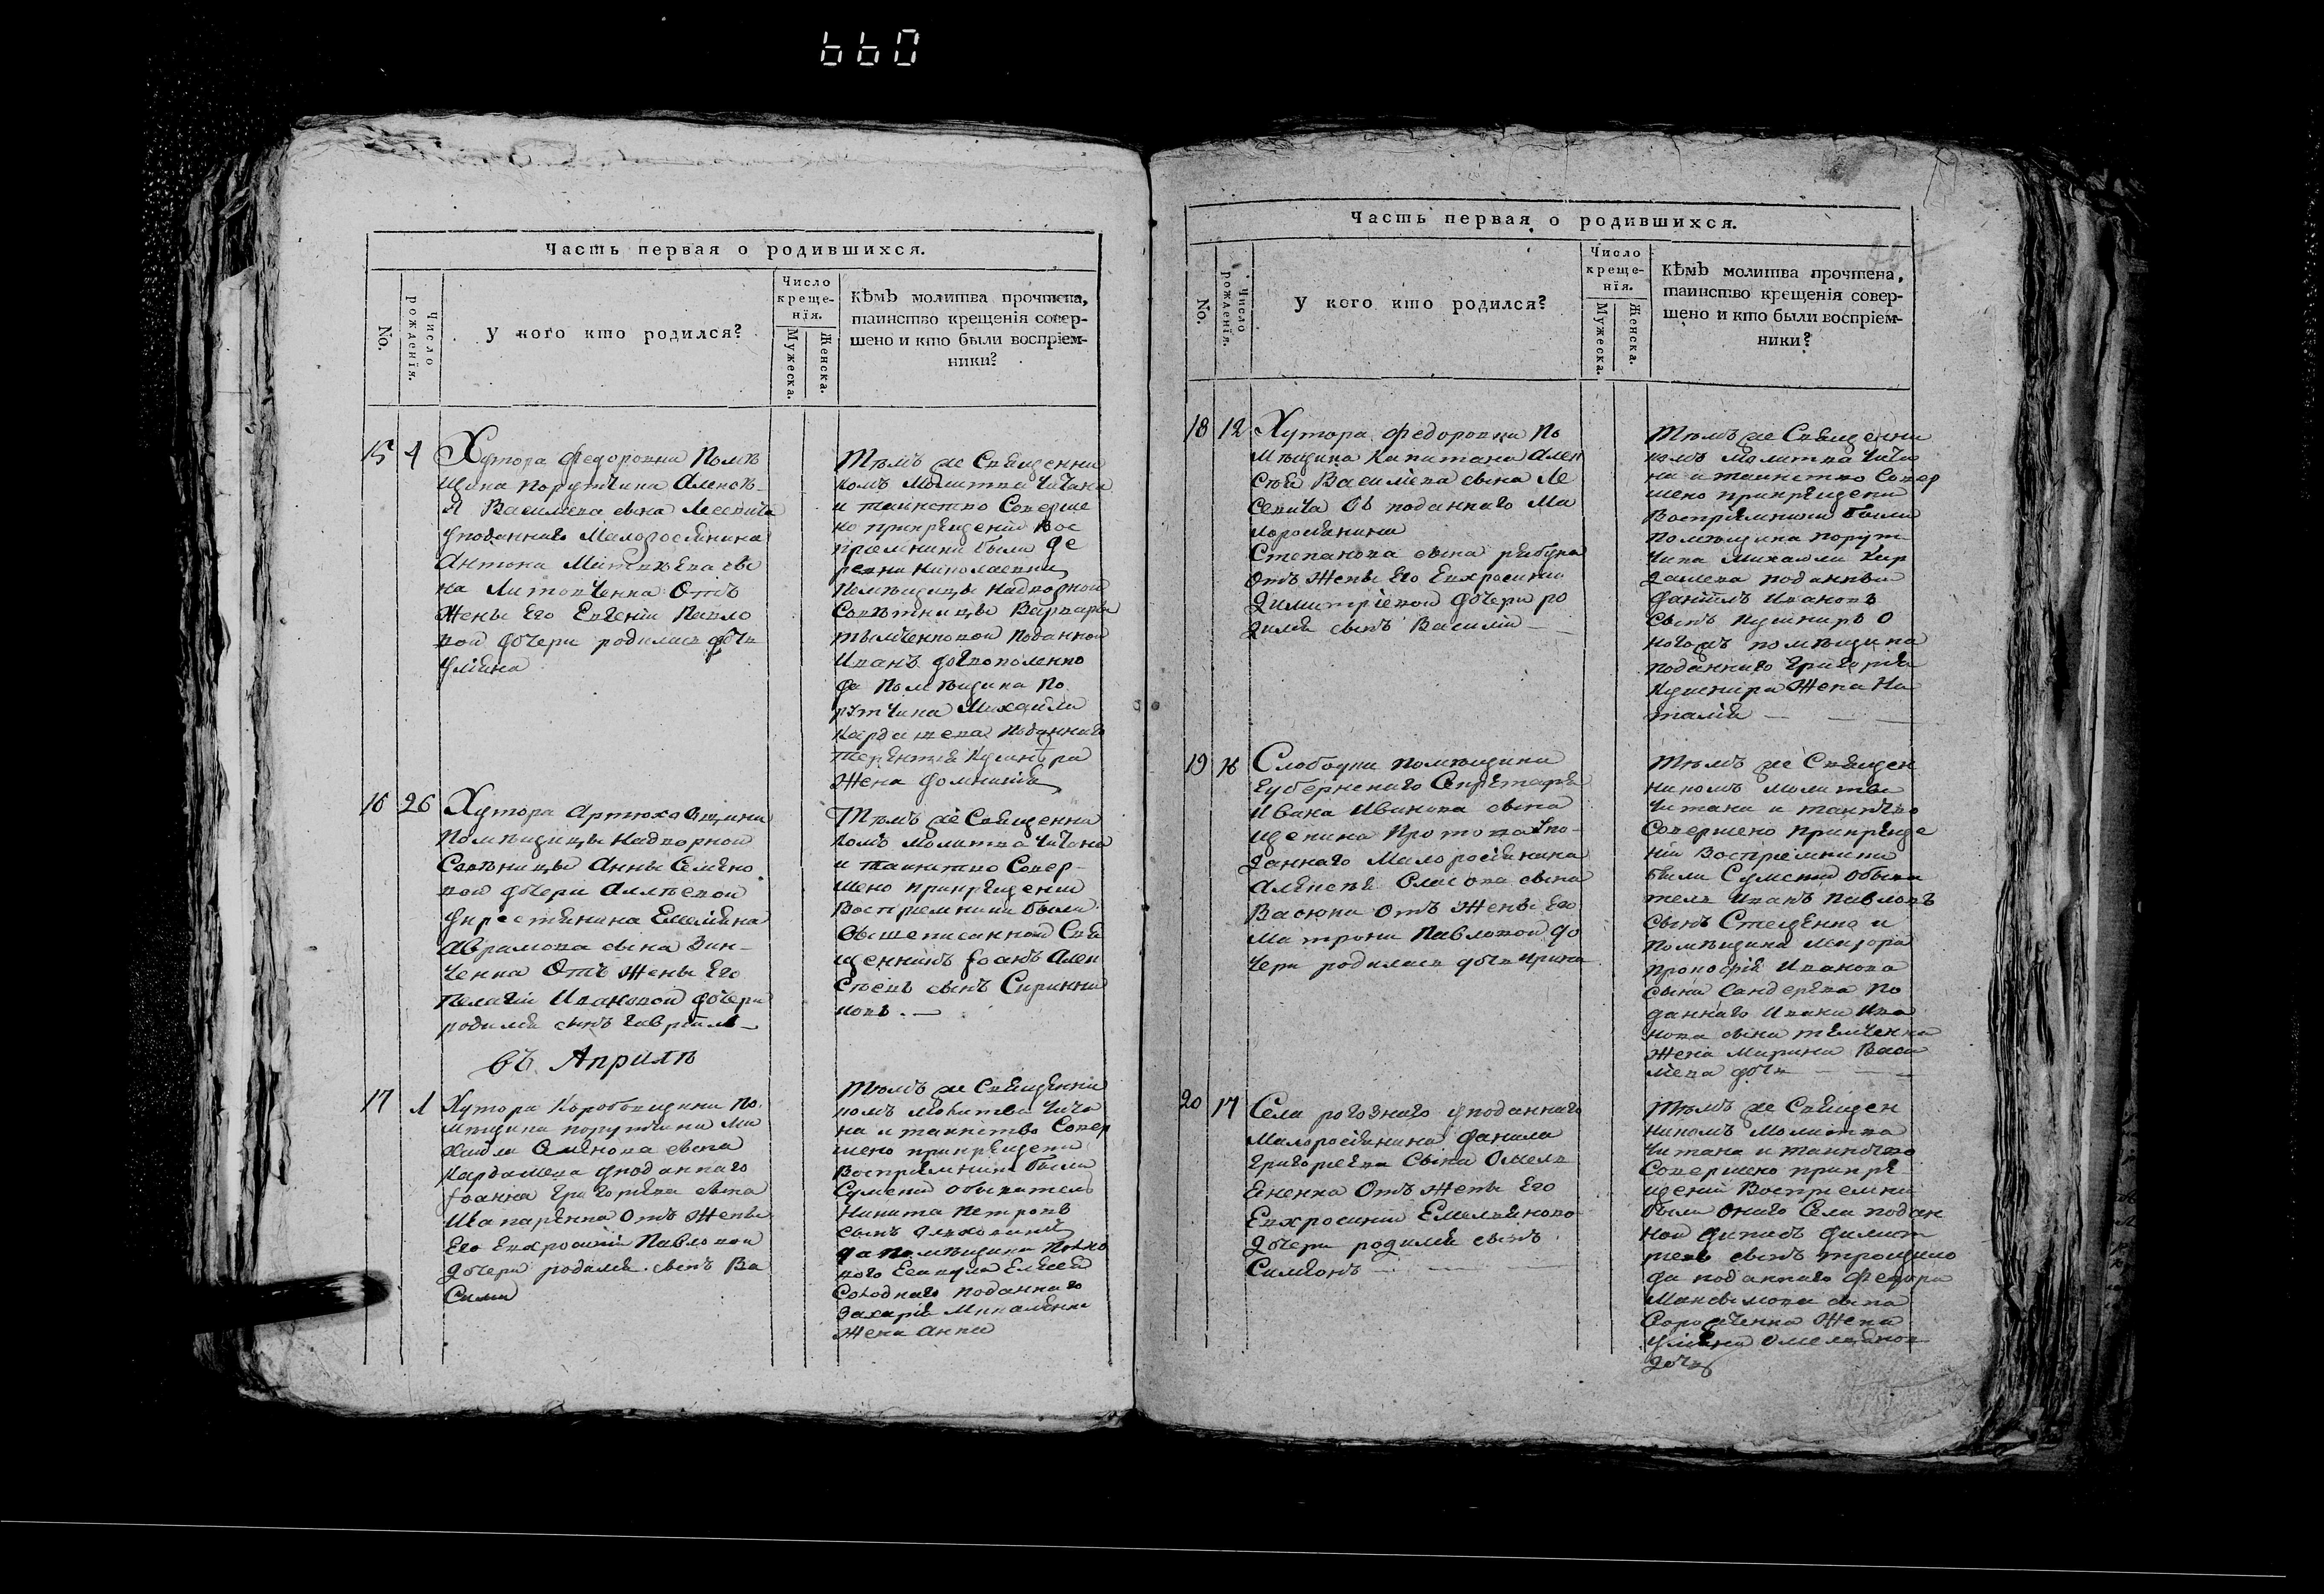 660
Часть первая о родившихся.
No.
Число рожденія.
У кого кто родился?
Число
креще-
нія.
Мужеска.
Женска.
Кѣмъ молитва прочтена,
таинство крещенія совер-
шено и кто были воспріем-
ники?
15 4
Хутора Федоровки Помѣ
щика порутчика Алексѣ-
я Василева сына Лесевича
уподаннаго Малоросіянина
Антона Матвѣева сы
на Литовченка Отъ
Жены Его Евгеніи Павло
вой дочери родилась дочь
Уліяна
Тѣмъ же Священни
комъ Молитва Читана
и таинство Соверше
но прикрещеніи вос
приемники были де
ревни Николаевки
Помѣщицы Надворной
Совѣтницы Варвары
поданной
Иванъ
да Помѣщика По
рутчика Михаила
Кардашева Поданнаго
Терентія Кушнѣра
Жена Домникія
16 26
Хутора Артюховщини
Помѣщицы Надворной
Совѣтницы Анны Семено
вой дочери Алаѣевой
укрестянина Емеліяна
Аврамова сына Зин-
ченка Отъ Жены Его
Пелагіи Ивановой дочери
родился сынъ Гавріилъ
Тѣмъ же Священни
комъ Молитва Читана
и таинство Совер-
шено прикрещеніи
Восприемники были
Вышеписанной Свя
щенникъ Іоанъ Алек
Сѣевъ сынъ
въ Априлѣ
17 1
Хутора Коробовщини По
мѣщика порутчика Ми
хаила Семенова сына
Кардашева уподаннаго
Іоанна Григорьева сына
Шапаренка Отъ Жены
Его Евхросиніи Павловой
дочери родился сынъ Ва
Силій
Тѣмъ же Священни
комъ молитва Чита
на и таинство Совер
шено прикрещени
Восприемники были
Сумской обыватель
Никита Петровъ
сынъ
да помѣщика Полко
вого Есаула Елисея
поданнаго
Захарія
Жена Анна
Часть первая о родившихся.
No.
Число рожденія.
У кого кто родился?
Число
креще-
нія.
Мужеска.
Женска.
Кѣмъ молитва прочтена,
таинство крещенія совер-
шено и кто были воспріем-
ники?
18 12
Хутора Федоровки По
мѣщика Капитана Алек
Сѣя Василіева сына Ле
Севича Об поданнаго Ма
лоросіянина
Степанова сына рябуха
Отъ Жены Его Евхросиніи
Димитріевой дочери ро
дился сынъ Василій
Тѣмъ же Священни
комъ Молитва Чита
на и таинство Совер
шено прикрещени
Восприемники были
помѣщика порут
чика Михаила Кар
дашева поданный
Даніилъ Ивановъ
Сынъ Кушниръ О
ногожъ помѣщика
поданнаго Григорія
Кушнира Жена На
талія
19 16
Слободки помѣщика
Губернскаго Секретаря
Ивана Иванова сына
упо-
даннаго Малоросіянина
Алексѣя Власова сына
Васюка Отъ Жены Его
Матрони Павловой до
чери родилась дочь Ирина
Тѣмъ же Священ
никомъ молитва
Читана и таинство
Совершено прикреще
ніи Восприемники
были Сумской обыва
тель Иванъ Павловъ
сынъ Стеценко и
помѣщика Маіора
Прокофія Иванова
сына Сандерева По
даннаго Ивана Ива
нова сына
жена Марина Васи
лева дочь
20 17
Села рогознаго уподаннаго
Малоросіянина Данила
Григорьева Сына Омель
яненка Отъ Жены Его
Евхросиніи Емельяново
дочери родился сынъ
Симіонъ
Тѣмъ же Священ
никомъ Молитва
Читана и таинство
Совершено прикре
щеніи Восприемни
были оного Села подан
ной Димит
ріевъ сынъ
да поданнаго Федора
Максимова сына
Жена
Уліяна Омельянов
дочь